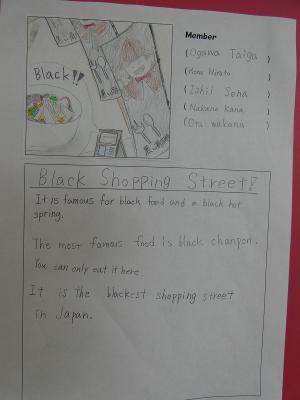 Black!!
Member
(Ogawa Taiga)
(Kono Hiroto)
(Ishii Sena)
(Nakano Kana)
(Ota wakana)
Black Shopping Street!
It is famous for black food and a black hot
spring.
The most famous food is black chanpon.
You can only eat it here.
It is the blackest shopping street
in Japan.